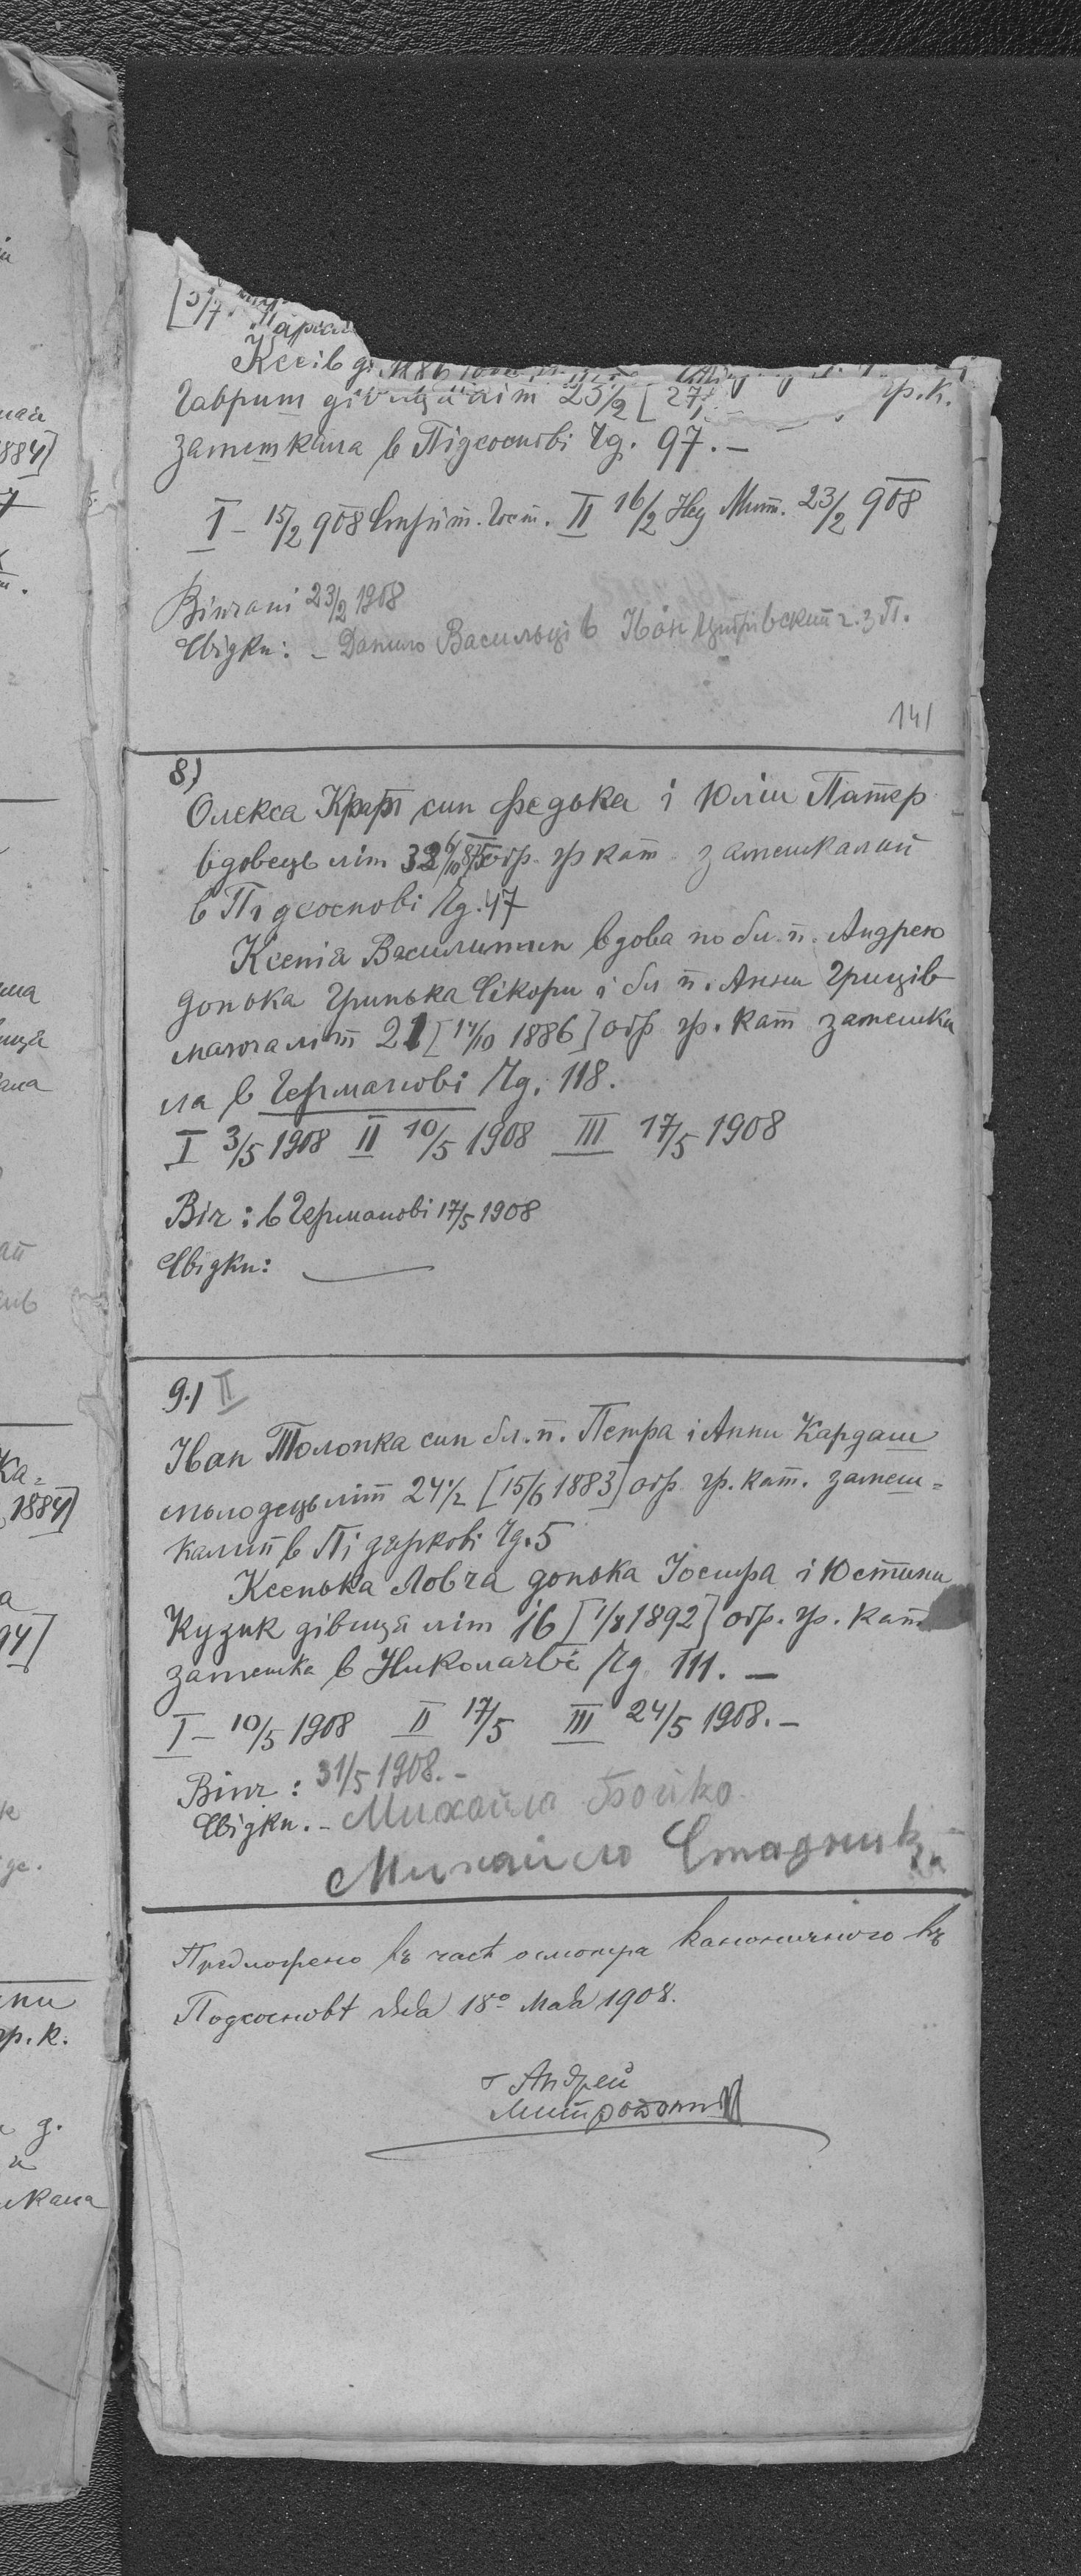 [3/7
Марія
Ксеів
Гаврит дівиця літ 23½ [27 гр. к.
замешкала в Підсоснові Чд. 97. —
I – 15/2 908 Стріт. Гост. II 16/2 Нед Мит. 23/2 908
Вінчані 23/2 1908
Свідки: – Данило Васильців Іван г. з П.
141
8)
Олекса син Федька і Юлії Патер
вдовець літ 32 обр. гр кат замешкалий
в Підсоснові Чд. 47
Ксенія Василишин вдова по бл. п. Андрею
донька Гринька Сікори і бл п. Анни Гриців
маюча літ 21 [14/10 1886] обр гр. кат замешка
ла в Германові Чд. 118.
I 3/5 1908 II 10/5 1908 III 17/5 1908
Вінч: в Германові 17/5 1908
Свідки: —
9.) II
Іван Толопка син бл. п. Петра і Анни Кардаш
молодець літ 24½ [15/6 1883] обр гр. кат. замеш=
калий в Підяркові Чд. 5
Ксенька Ловча донька Йосифа і Юстини
Кузик дівиця літ 16 [1/8 1892] обр. гр. кат.
замешка в Николаєві Чд 111. —
I – 10/5 1908 II 17/5 III 24/5 1908. –
Вінч: 31/5 1908. –
Свідки. – Михайло Бойко
Михайло Стадник
Предложено въ часѣ осмотра каноничного въ
Подсосновѣ дня 18º Мая 1908.
† Андрей
Митрополит